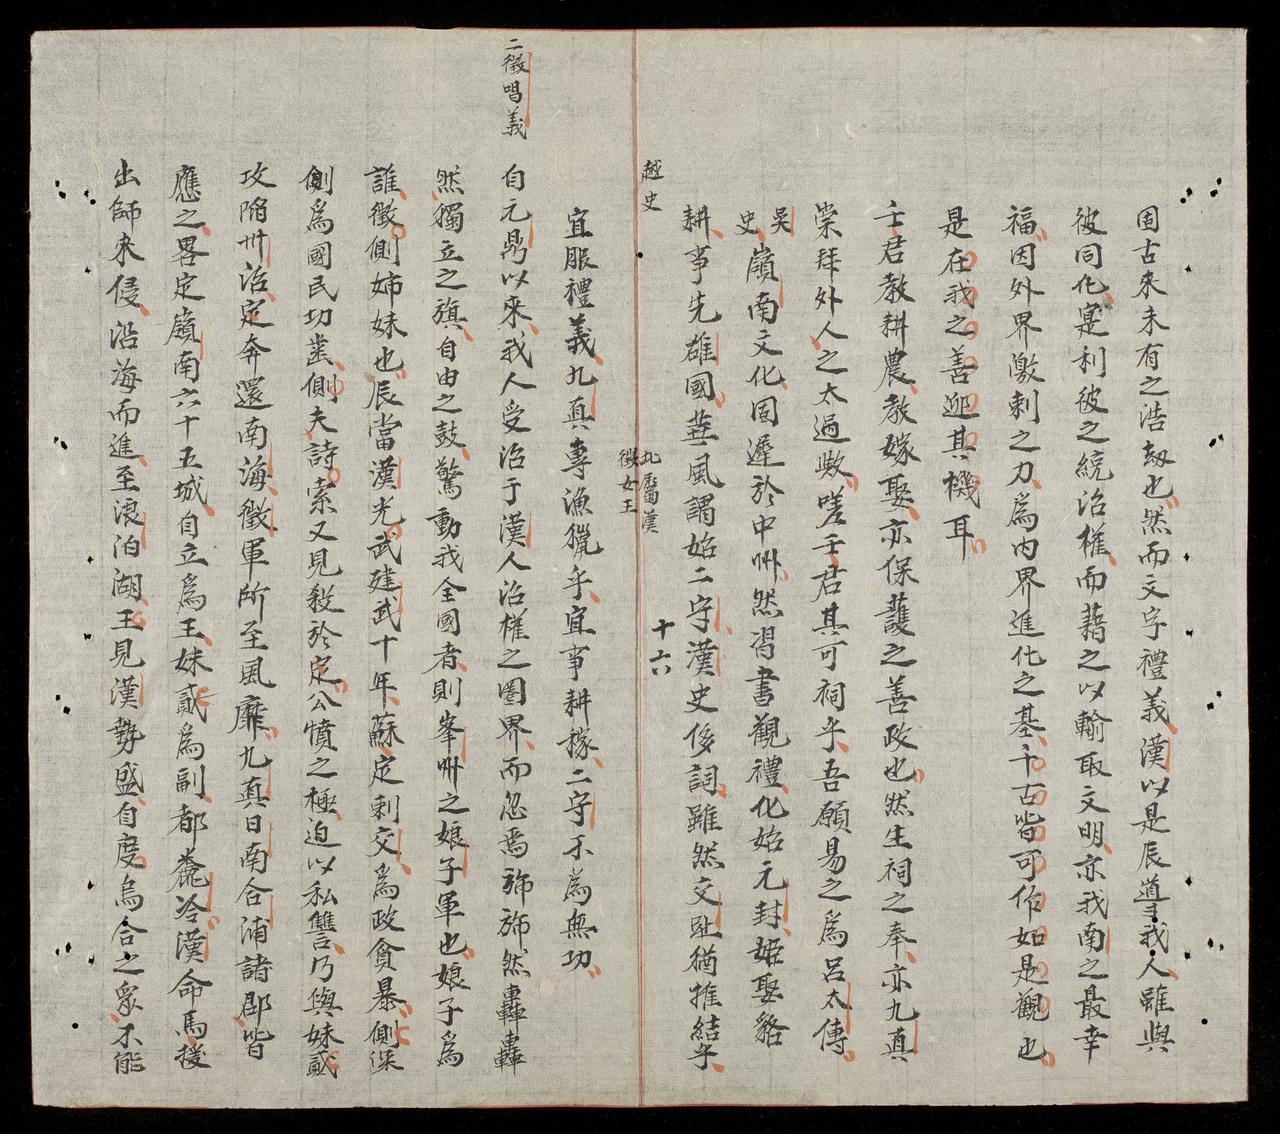 固古來未有之浩劫也然而文字禮義漢以是辰道我人雖與
彼同化寔利彼之統治權而藉之以輸取文明亦我南之最幸
福因外界激刺之力為內界進化之基千古皆可作如是觀也
是在我之善迎其機耳
壬君教耕農教嫁娶亦保護之善政也然生祠之奉亦九真
崇拜外人之太過歟嗟壬君其可祠乎吾願易之為呂太傳
吳史嶺南文化固遲於中州然習書觀禮化始元封姫娶貉
耕事先雄國華風謂始二守漢史侈詞雖然交趾猶推結乎
越史
北屬漢
徵女王
十六
宜服禮義九真專漁獵乎宜事耕稼二守不為無功
二徵唱義
自元鼎以來我人受治于漢人治權之圈界而忽焉旆旆然轟轟
然獨立之旗自由之鼓驚動我全國者則峯州之娘子軍也娘子為
誰徵側姉妹也辰當漢光武建武十年蘇定刺交為政貪暴側深
側為國民功耋側夫詩索又見殺於定公憤之極迫以私讐乃與妹貳
攻陷州治定奔還南海徵軍所至風靡九真日南合浦諸郡皆
應之畧定嶺南六十五城自立為王妹貳為副都麊泠漢命馬援
出師來侵沿海而進至浪泊湖王見漢勢盛自度烏合之眾不能